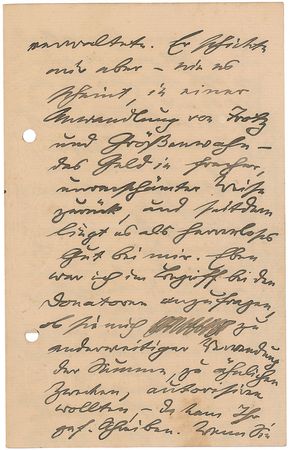 verwaltete. Er schickte
mir aber – wie es
scheint, in einer
Anwandlung von Trotz
und Größenwahn –
das Geld in frecher,
unverschämter Weise
zurück, und seitdem
liegt es als herrenloses
Gut bei mir. Eben
war ich im Begriff bei den
Donatoren anzufragen,
ob sie mich zu
anderweitiger Verwendung
der Summe, zu ähnlichen
Zwecken, autorisiren
wollten, – da kam Ihr
gef. Schreiben. Wenn Sie